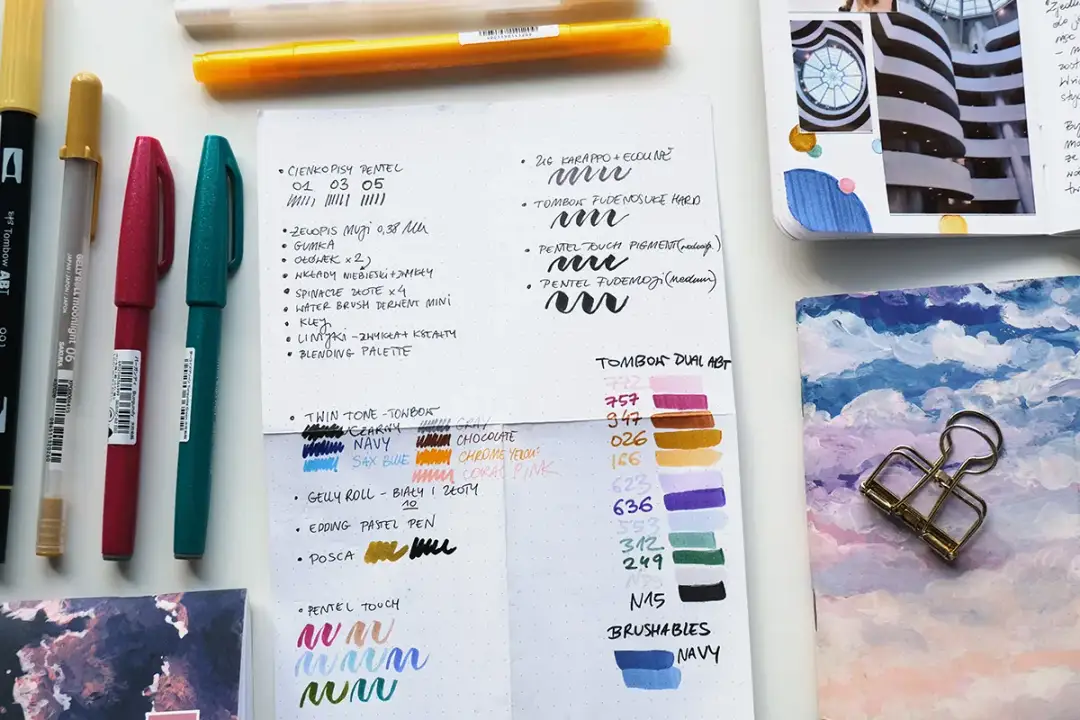 • CIENKOPISY PENTEL
01 03 05
• ŻELOPIS MUJI 0,38
• GUMKA
• OŁÓWEK x 2
• WKŁADY NIEBIESKI + ZWYKŁY
• SPINACZE ZŁOTE x 4
• WATER BRUSH DERWENT MINI
• KLEJ
• LINIJKI - ZWYKŁA + KSZTAŁTY
• BLENDING PALETTE
• ZIG KARAPPO + ECOLINE
• TOMBOW FUDENOSUKE HARD
• PENTEL TOUCH PIGMENT
• PENTEL FUDEMOJI (medium)
• TWIN TONE - TOMBOW
CZARNY
NAVY
SAX BLUE
GRAY
CHOCOLATE
CHROME YELLOW
CORAL PINK
• GELLY ROLL - BIAŁY I ZŁOTY
10
• EDDING PASTEL PEN
• POSCA
• PENTEL TOUCH
TOMBOW DUAL ABT
772
757
947
026
166
623
636
553
312
249
N15
BRUSHABLES
NAVY
Tombow ABT
991
GELLY ROLL moonlight 06
SAKURA